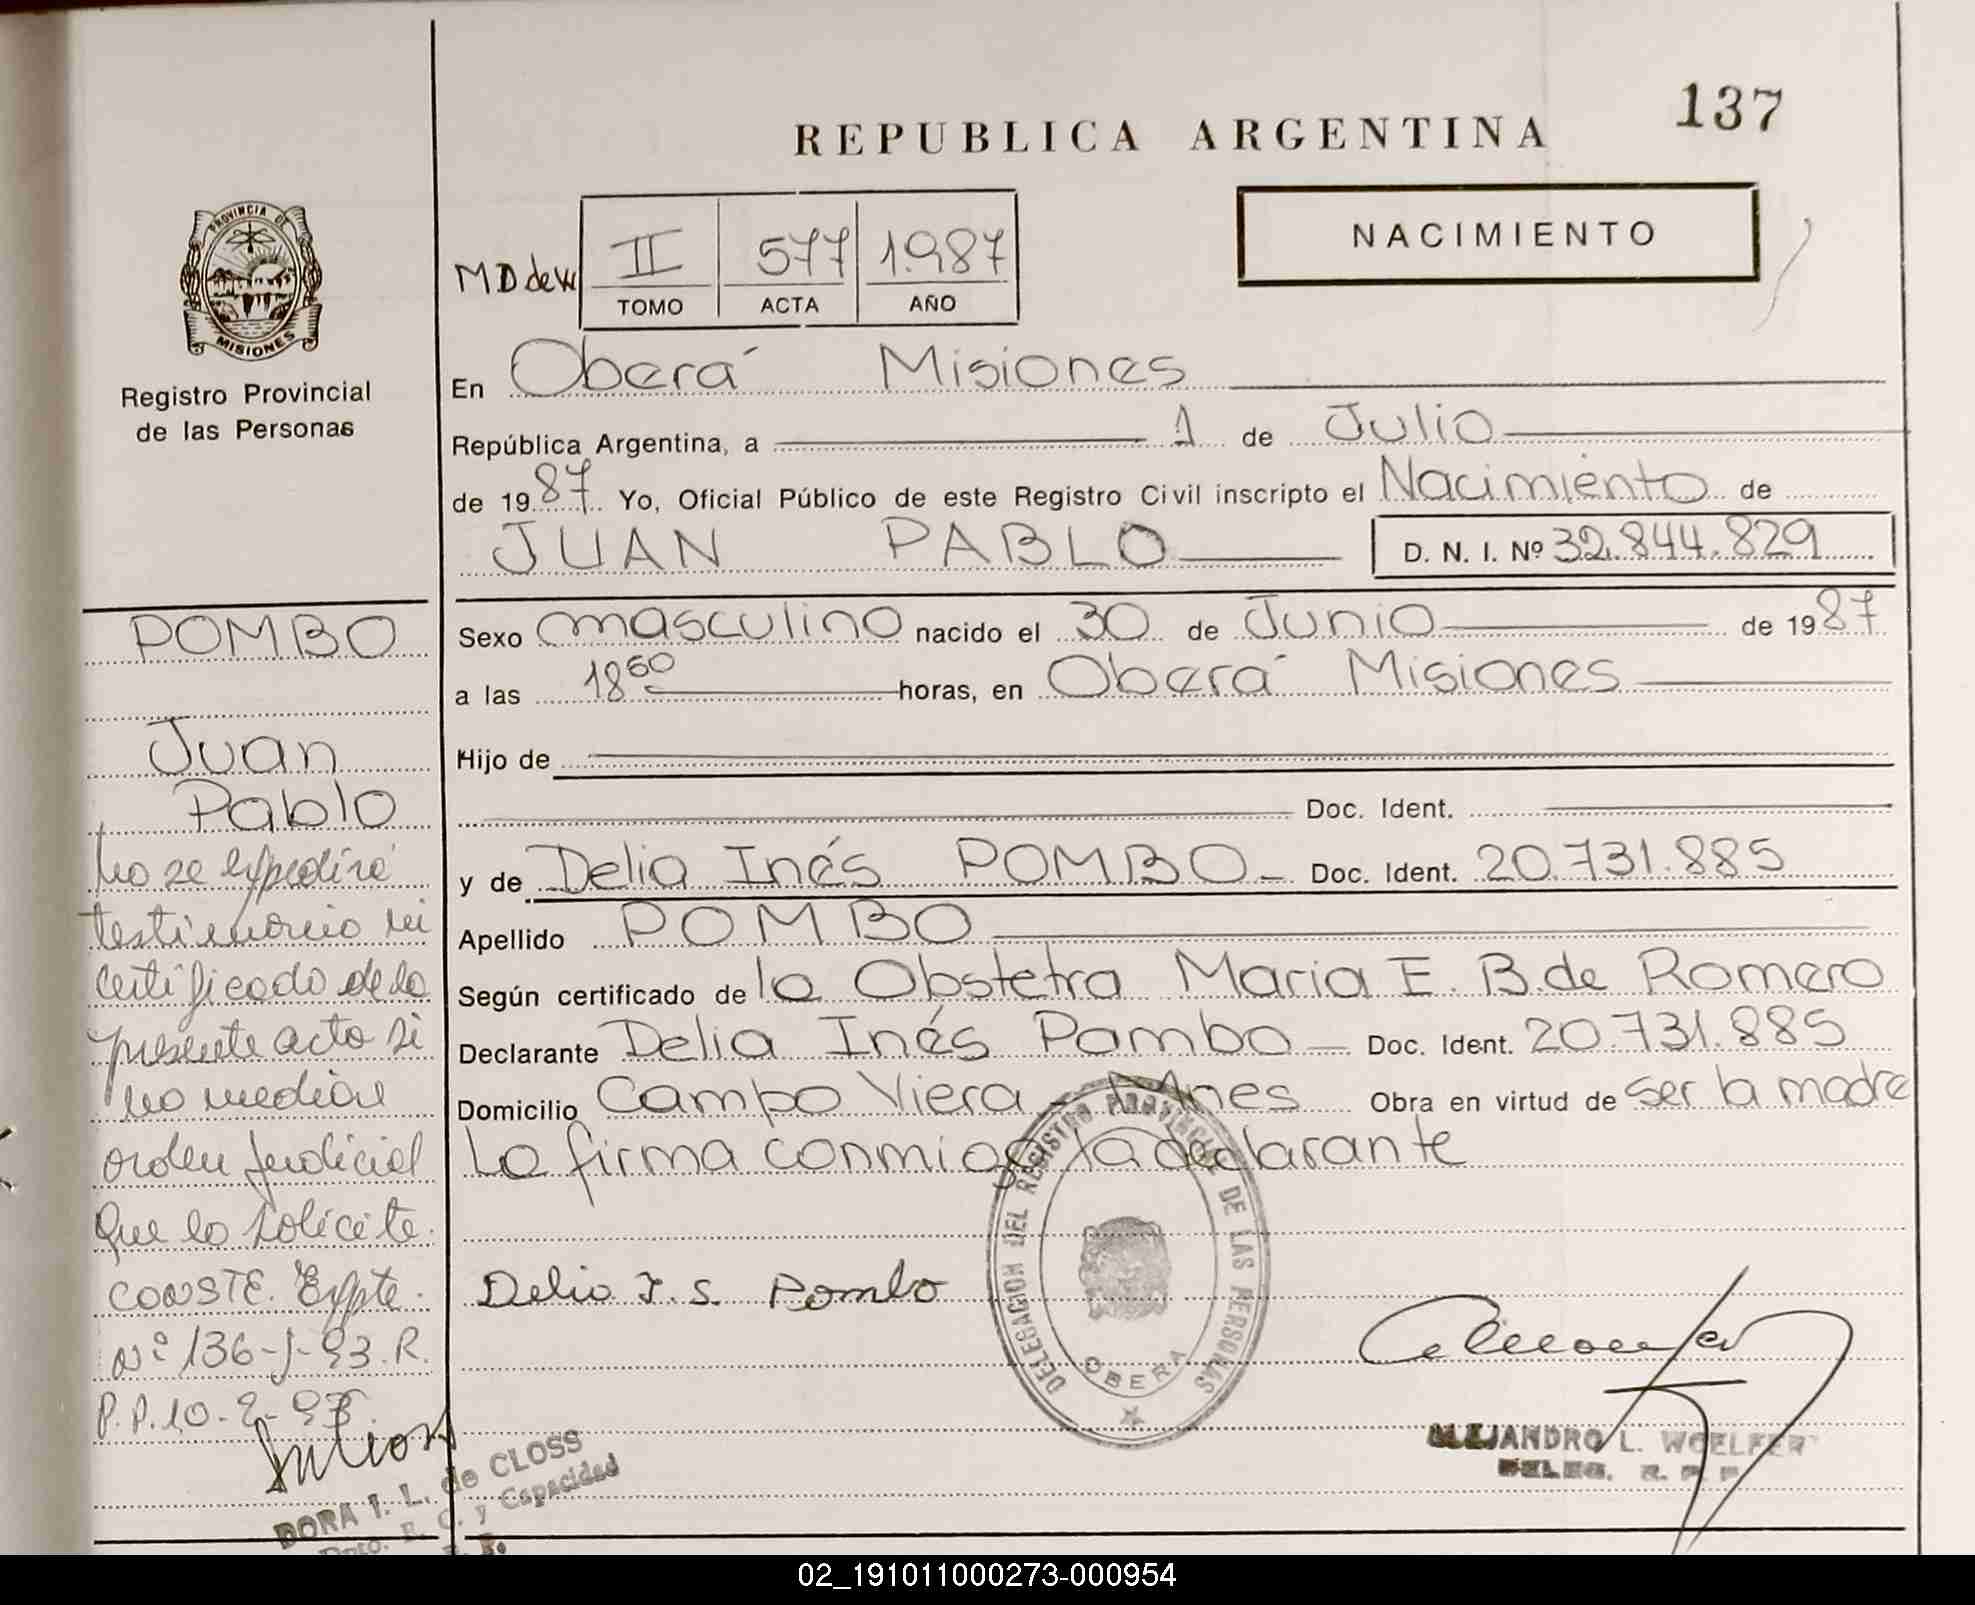 137
REPUBLICA ARGENTINA
NACIMIENTO
PROVINCIA DE
MISIONES
Registro Provincial
de las Personas
II 577 1.987
TOMO ACTA AÑO
En Oberá Misiones
República Argentina, a 1 de Julio
de 1987. Yo, Oficial Público de este Registro Civil inscripto el Nacimiento de
JUAN PABLO D. N. I. Nº 32.844.829
Sexo masculino nacido el 30 de Junio de 1987
a las 18 horas, en Oberá Misiones
Hijo de
Doc. Ident.
y de Delia Inés POMBO Doc. Ident. 20.731.885
Apellido POMBO
Según certificado de la Obstetra Maria E. B. de Romero
Declarante Delia Inés Pombo Doc. Ident. 20.731.885
Domicilio Campo Viera - Mnes Obra en virtud de ser la madre
La firma conmigo la declarante
Delia I. S. Pombo
DELEGACION DEL REGISTRO PROVINCIAL DE LAS PERSONAS
OBERA
ALEJANDRO L. WOELFERT
DELEG. R. P. P.
POMBO
Juan
Pablo
No se expedirá
testimonio ni
certificado de la
presente acta si
no mediare
orden judicial
que lo solicite.
CONSTE. Expte.
Nº 136-J-93. R.
P.P. 10-2-93.
DORA I. L. de CLOSS
Dpto. E. C. y Capacidad
02_191011000273-000954